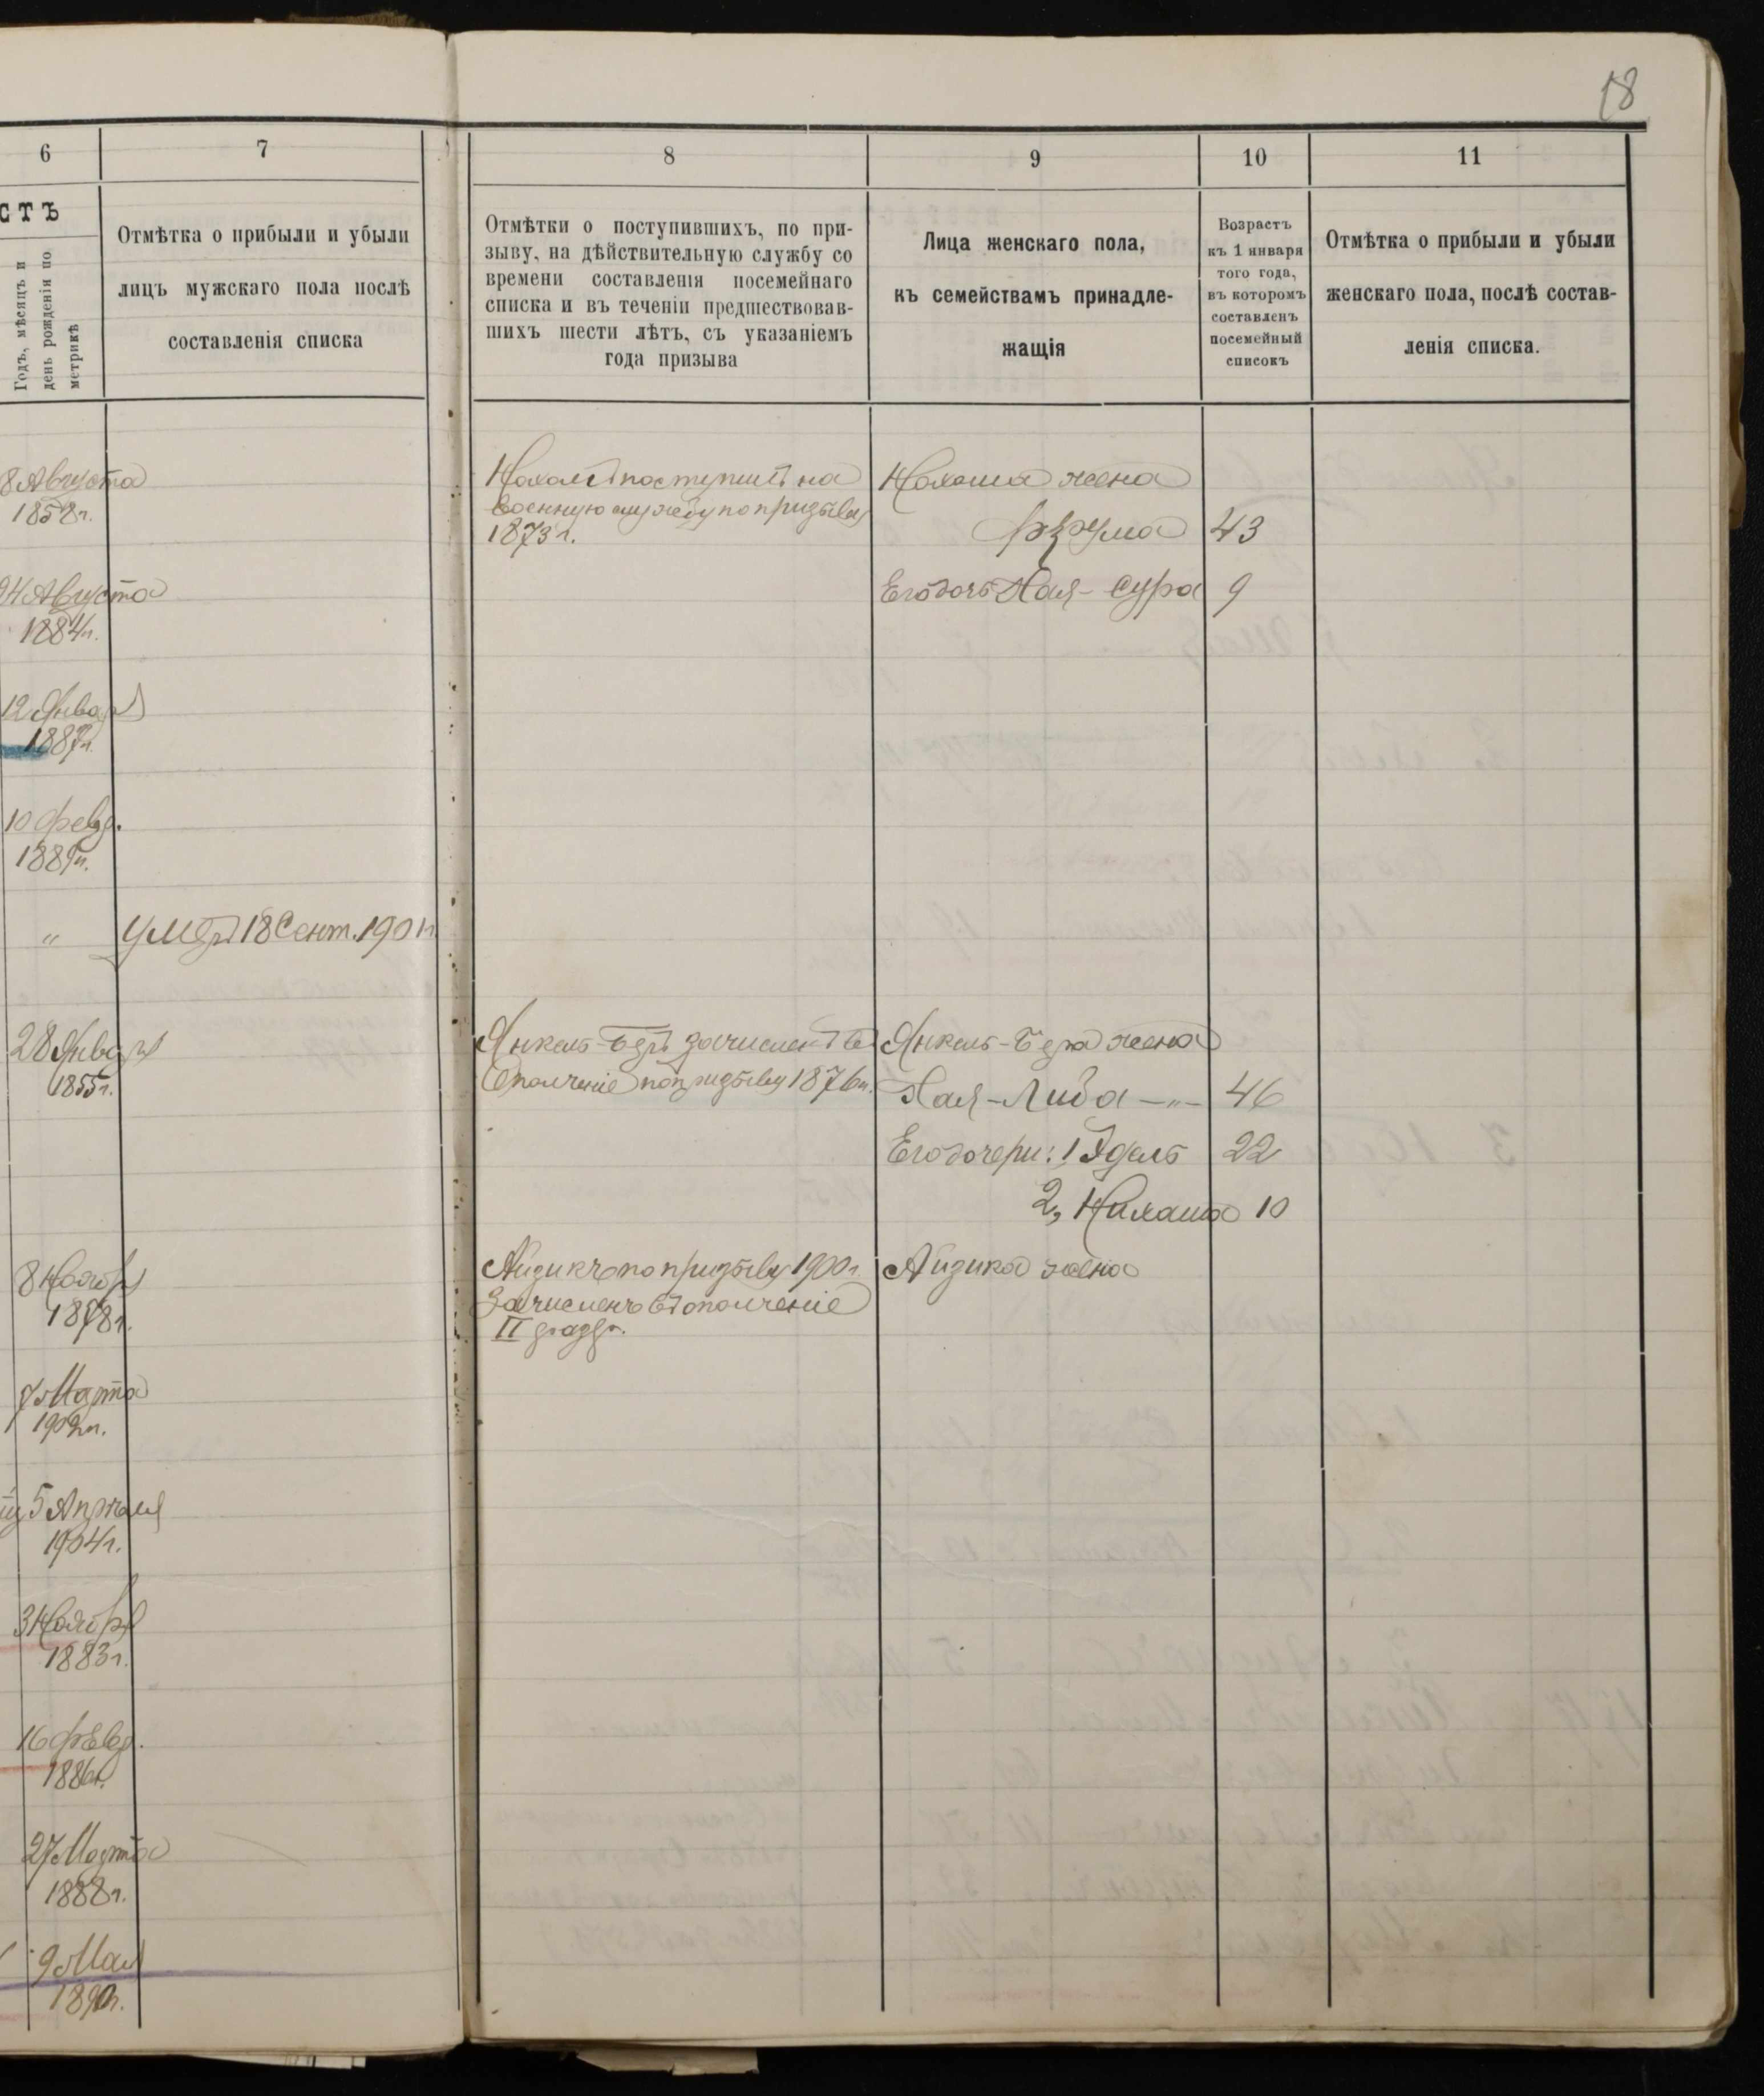 18
6
7
8
9
10
11
СТЪ
Годъ, мѣсяцъ и
день рожденія по
метрикѣ
Отмѣтка о прибыли и убыли
лицъ мужскаго пола послѣ
составленія списка
Отмѣтки о поступившихъ, по при-
зыву, на дѣйствительную службу со
времени составленія посемейнаго
списка и въ теченіи предшествовав-
шихъ шести лѣтъ, съ указаніемъ
года призыва
Лица женскаго пола,
къ семействамъ принадле-
жащія
Возрастъ
къ 1 января
того года,
въ которомъ
составленъ
посемейный
списокъ
Отмѣтка о прибыли и убыли
женскаго пола, послѣ состав-
ленія списка.
8 Августа
1858 г.
поступилъ на
военную службу по призыву
1873 г.
жена
43
24 Августа
1884 г.
Его дочь Хая-Сура 9
12 Январ
1887 г.
10 Февр.
1889 г.
" умеръ 18 Сент. 1901 г.
28 Январ
1855 г.
Янкель-Беръ зачисленъ въ
Ополченіе по призыву 1876 г.
Янкель-Бера жена
Хая-Либа -"- 46
Его дочери: 1, Эдель 22
2, 10
8 Ноябр
1878 г.
Айзикъ по призыву 1900 г.
зачисленъ въ ополченіе
II разр.
Айзика жена
7 Марта
1902 г.
5 Апрѣля
1904 г.
3 Ноябр
1883 г.
16 Февр.
1886 г.
27 Марта
1888 г.
9 Мая
1890 г.